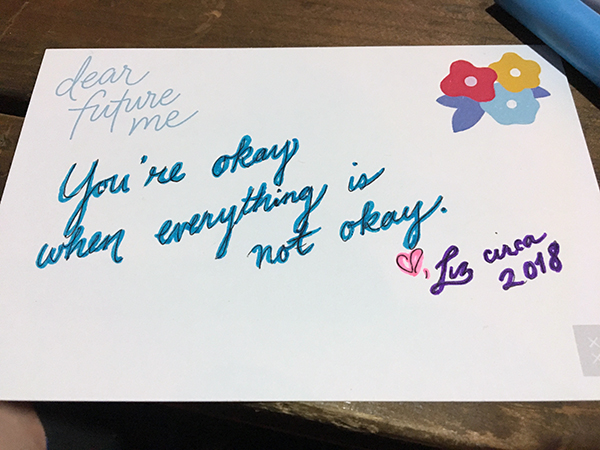 dear
future
me
You're okay
when everything is
not okay.
♥, Liz circa
2018